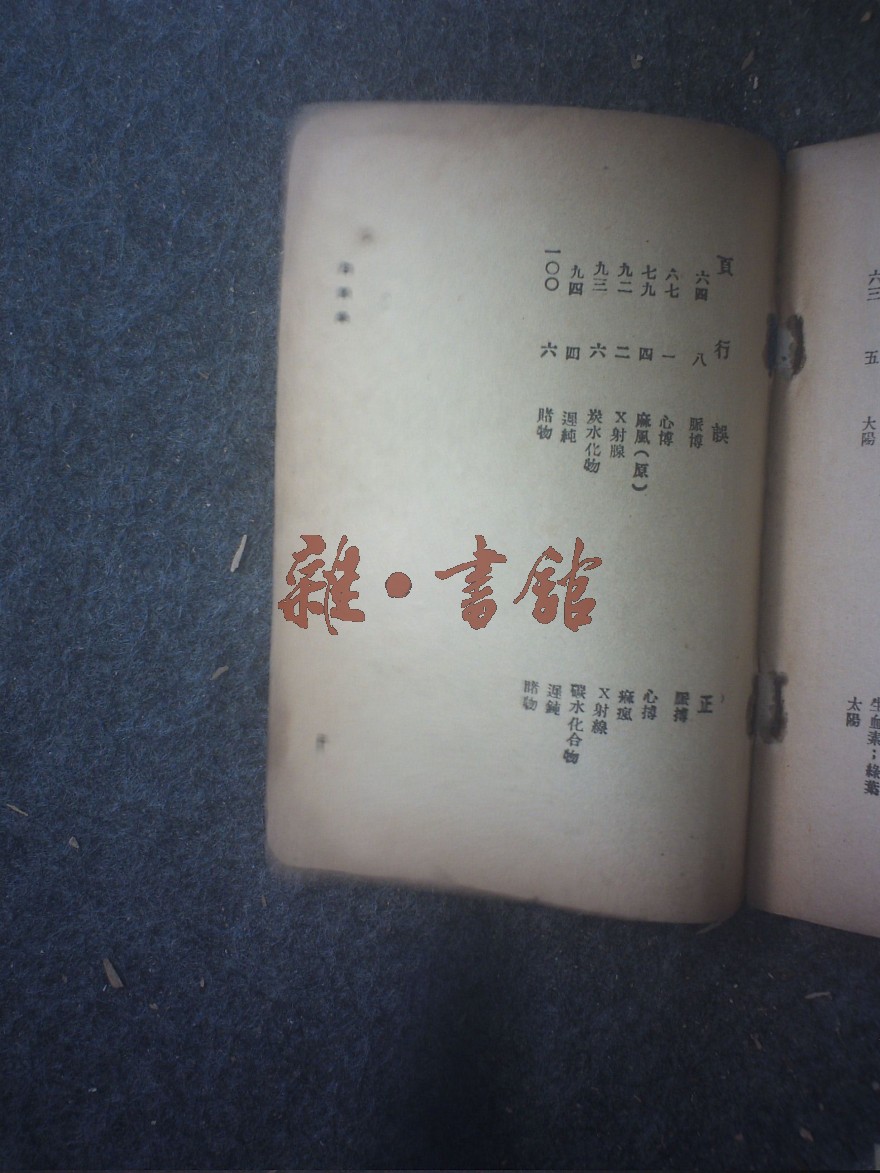 生血素；綠葉
六三 五 大陽 太陽
頁 行 誤 正
六四 八 脈博 脈搏
六七 一 心博 心搏
七九 四 麻風(原) 痲瘋
九二 二 X射腺 X射線
九三 六 炭水化物 碳水化合物
九四 四 遲純 遲鈍
一〇〇 六 賭物 睹物
雜·書館